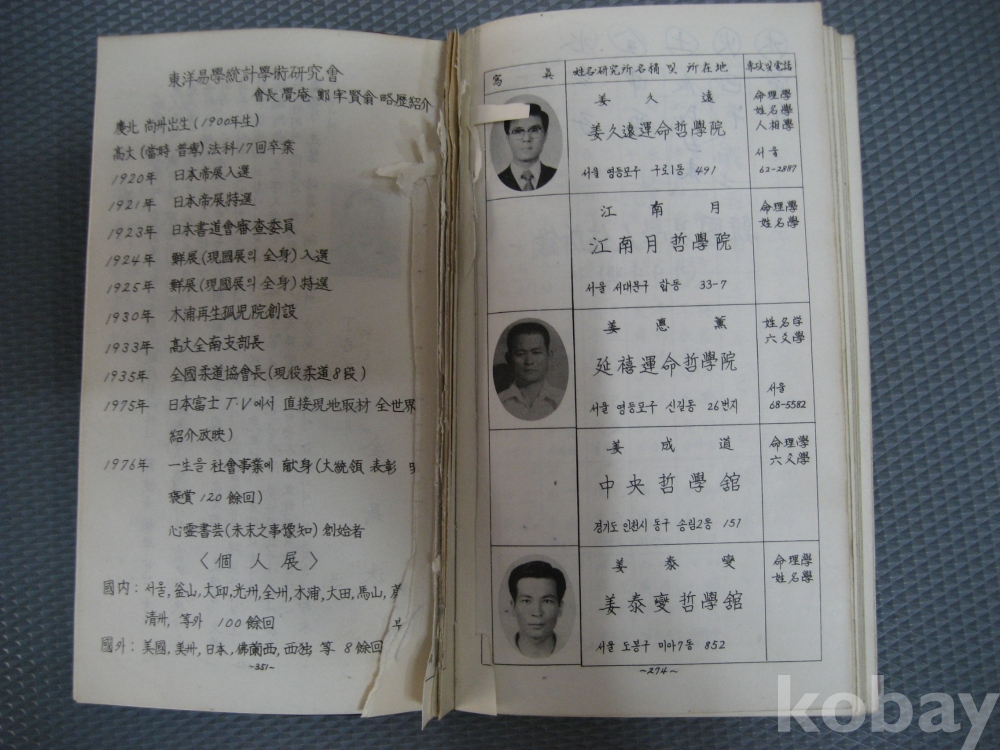 東洋易學統計學術研究會
會長 覺庵 鄭宇賢翁 略歷紹介
慶北 尙州出生 (1900年生)
高大 (當時 普專) 法科 17回 卒業
1920年 日本帝展入選
1921年 日本帝展特選
1923年 日本書道會審査委員
1924年 鮮展(現國展의 全身) 入選
1925年 鮮展(現國展의 全身) 特選
1930年 木浦再生孤児院創設
1933年 高大全南支部長
1935年 全國柔道協會長 (現役柔道8段)
1975年 日本富士 T·V에서 直接現地取材 全世界
紹介放映)
1976年 一生을 社會事業에 献身 (大統領 表彰
褒賞 120餘回)
心霊書芸(未末之事豫知) 創始者
〈個人展〉
國內: 서울, 釜山, 大邱, 光州, 全州, 木浦, 大田, 馬山,
清州, 等外 100餘回
國外: 美國, 美州, 日本, 佛蘭西, 西独 等 8餘回
~351~
寫眞 姓名·研究所名稱 및 所在地 專攻및電話
姜久遠
姜久遠運命哲學院
서울 영등포구 구로1동 491
命理學
姓名學
人相學
서울
62-2887
江南月
江南月哲學院
서울 서대문구 합동 33-7
命理學
姓名學
姜惠薰
延禧運命哲學院
서울 영등포구 신길동 26번지
姓名学
六爻學
서울
68-5582
姜成道
中央哲學舘
경기도 인천시 동구 송림2동 151
命理學
六爻學
姜泰變
姜泰變哲學舘
서울 도봉구 미아7동 852
命理學
姓名學
~274~
kobay